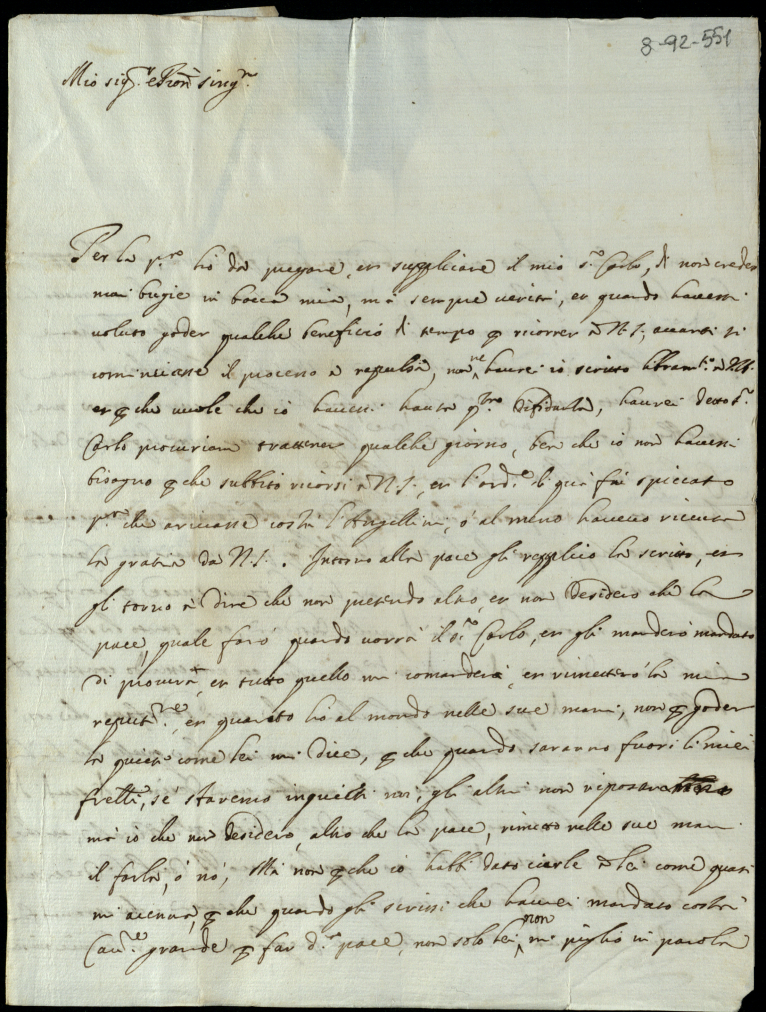 8-92-551
Mio sig.r e Pron sing.r
Per la p.ra hò da pregare, et supplicare il mio s.r Carlo, di non creder
mai bugie in bocca mia, mà sempre verità, et quando havessi
voluto goder qualche beneficio di tempo p ricorrer à N.S., avanti si
cominciasse il processo à repulsa, non ne haurei io scritto libram.te à
et p che vuole che io havessi disfidarla, haurei detto s.r
Carlo procuriam trattener qualche giorno, ben che io non havessi
bisogno p che subbito ricorsi à N.S., et l'ord.e di quà fù spiccato
p.a che arivasse costà l'Angellini, ò al meno havesse ricevuta
la gratia da N.S. Intorno alla pace gli replico la scritta, et
gli torno à dire che non pretendo altro, et non desidero che la
pace, quale farò quando vorrà il s.r Carlo, et gli manderò mandato
di procura, et tutto quello mi comanderà, et rimetterò la mia
reput.ne et quanto hò al mondo nelle sue mani, non p goder
la quiete come lei mi dice, p che quando saranno fuori li miei
fretti, se staremo inquieti noi, gli altri non riposara
mà io che non desidero altro che la pace, rimetto nelle sue mani
il farla, ò nò, Mà non p che io habbi dato ciarle à lei come quasi
mi acenna, p che quando gli scrissi che haurei mandato costà
Cau.re grande p far d.a pace, non solo lei non mi piglio in parola